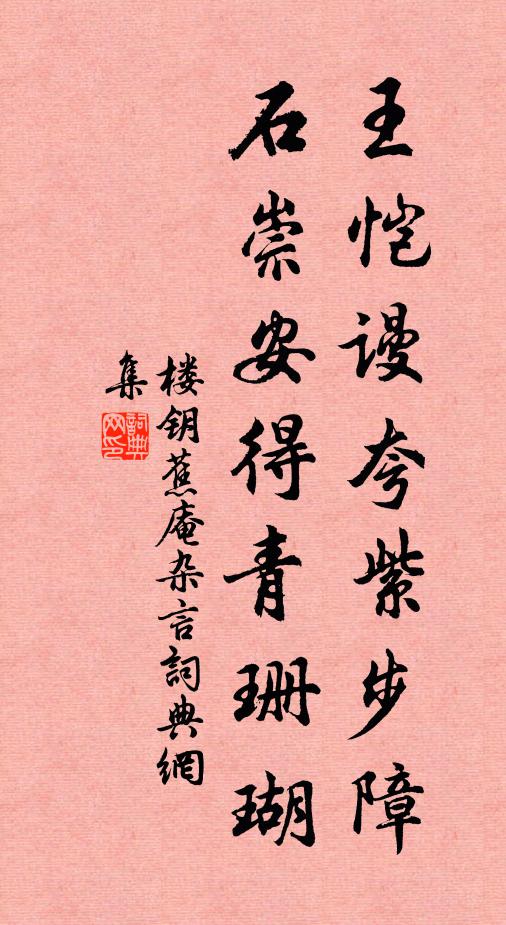 王恺谩夸紫步障
石崇安得青珊瑚
楼钥蕉庵杂言詞典網
集
詞典網印